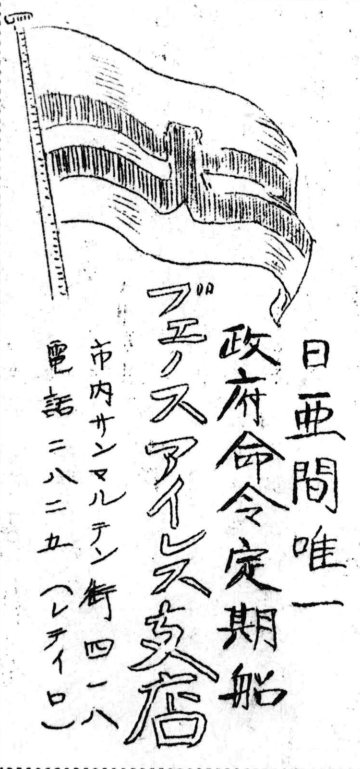 日亜間唯一
政府命令定期船
ブエノスアイレス支店
市内サンマルテン街四一八
電話二八二五(レティロ)